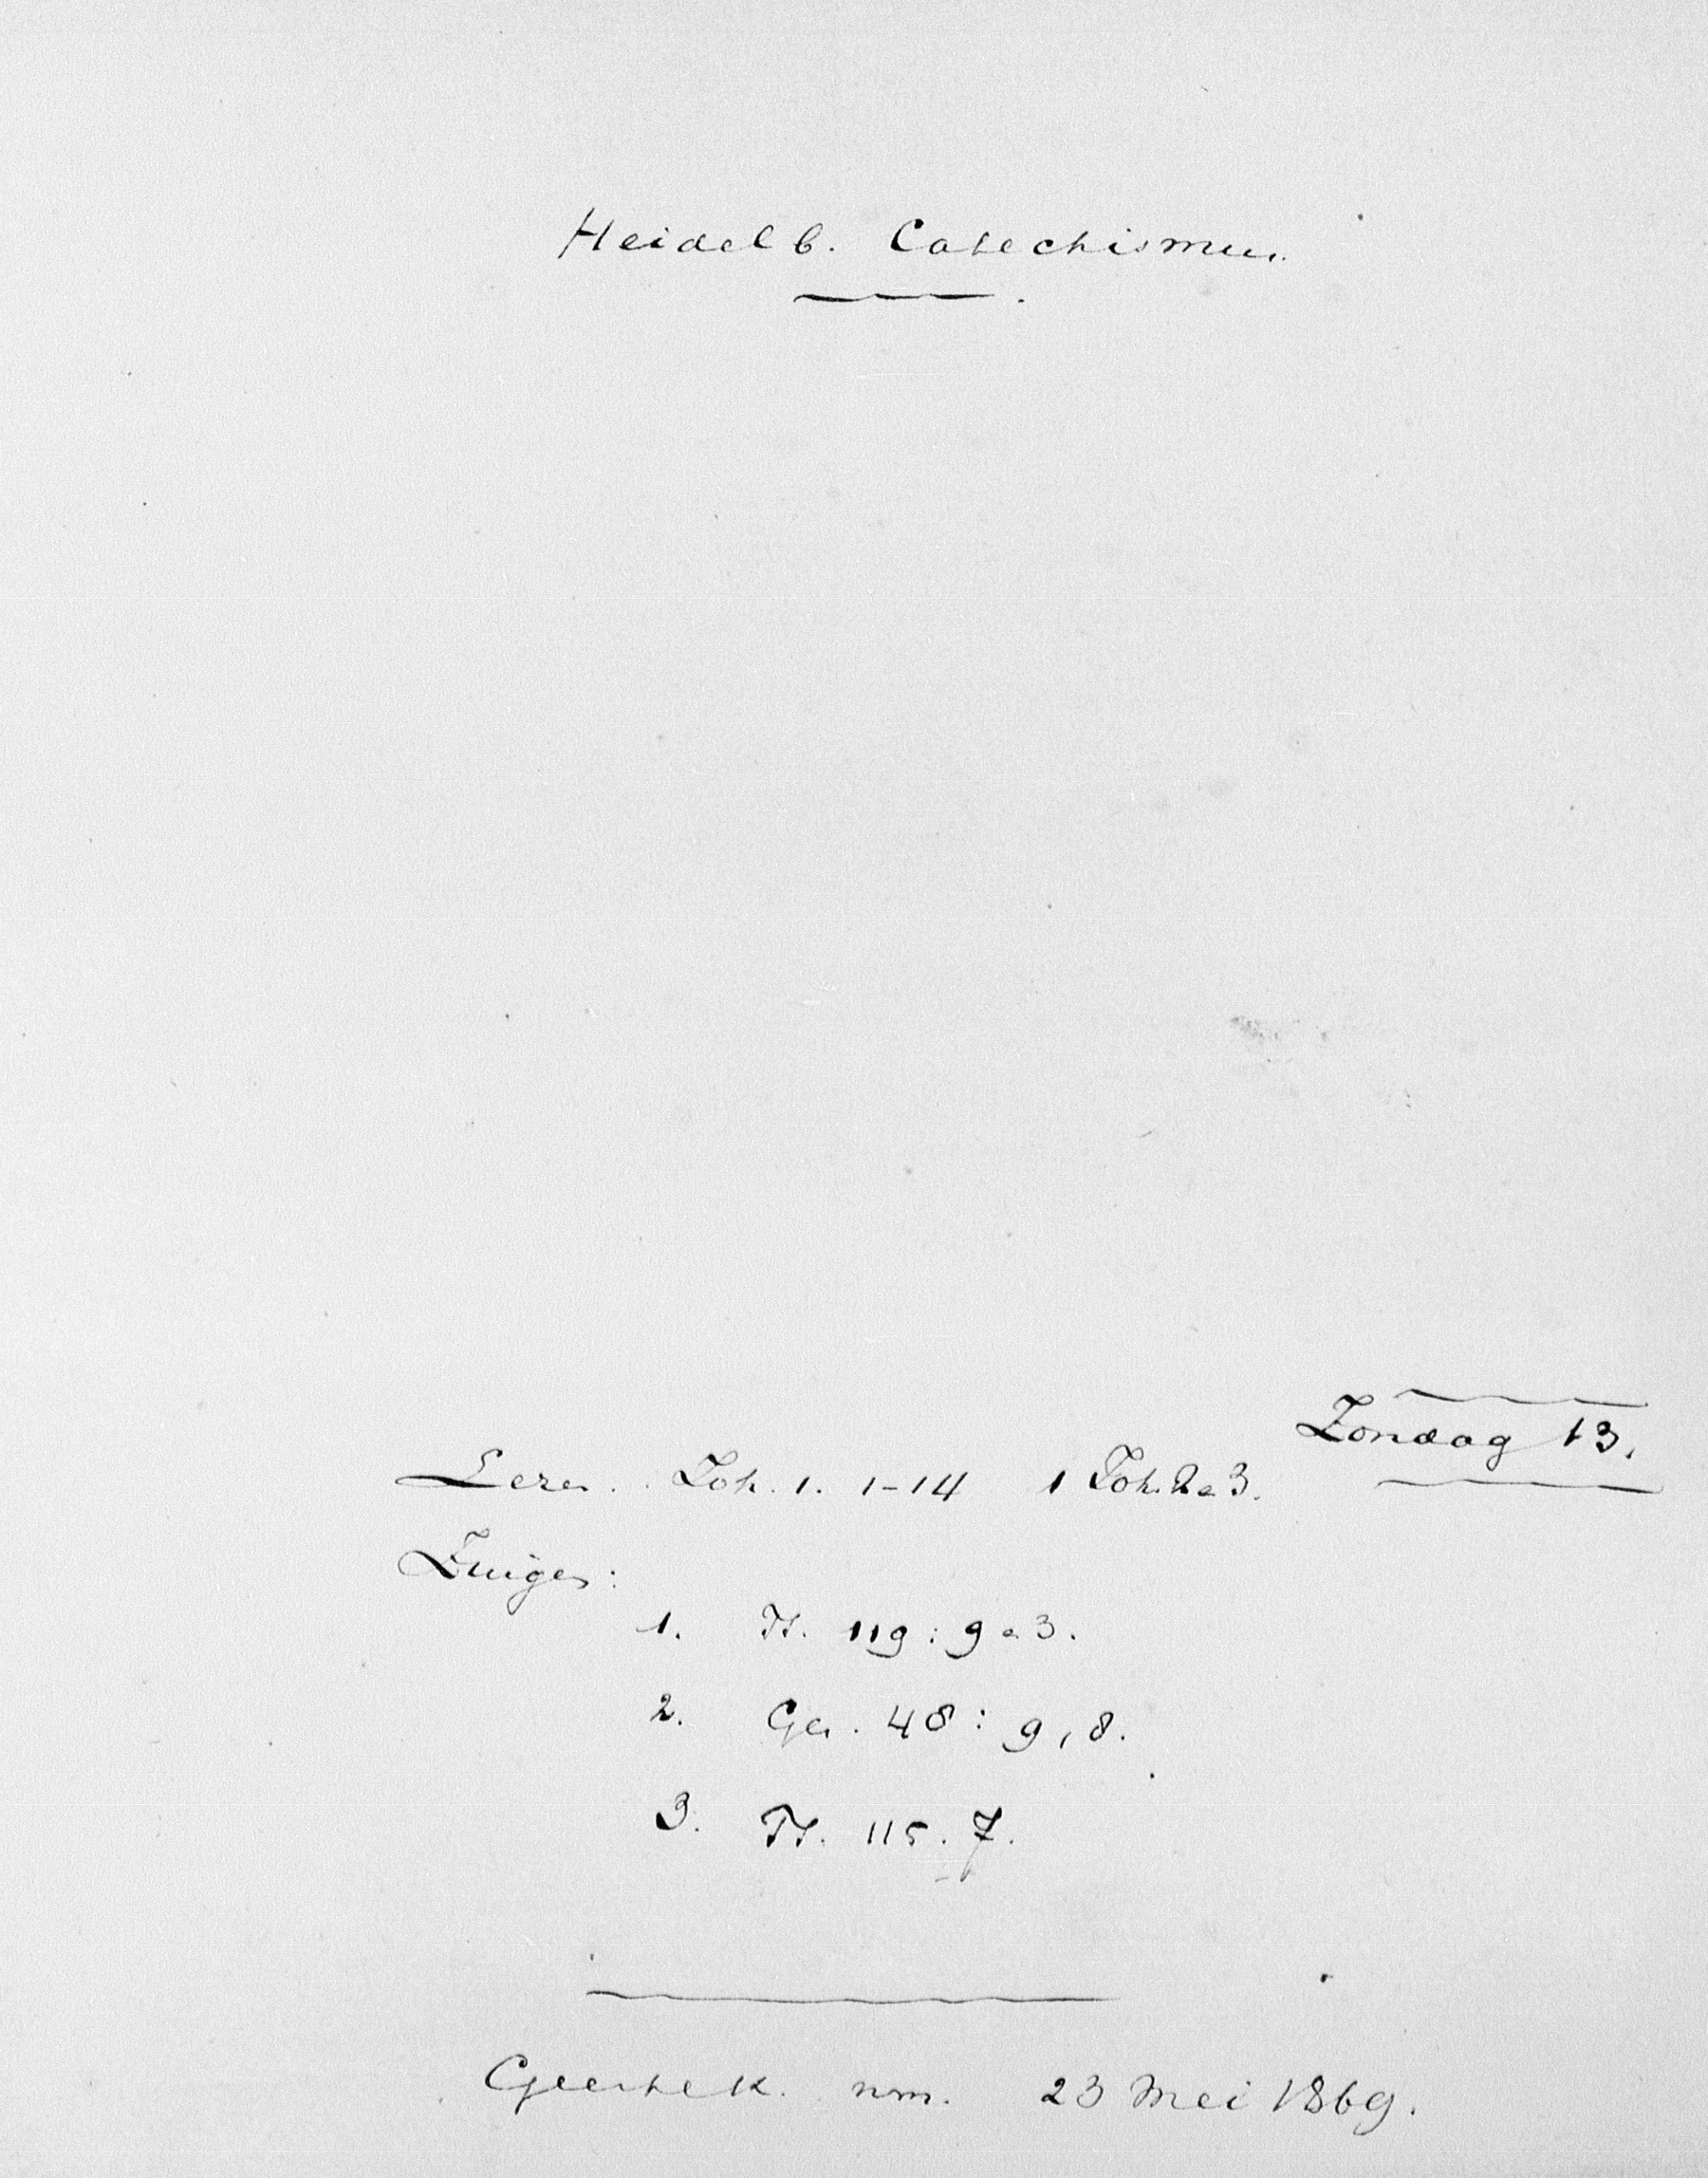 Heidelb. Catechismus.
Zondag 13.
Lezen. Joh. 1. 1-14 1 Joh. 2a3.
Zingen:
1. Ps. 119 : 9 a 3.
2. Gez. 48 : 9, 8.
3. Ps. 115. 7.
Geertek. nm. 23 Mei 1869.